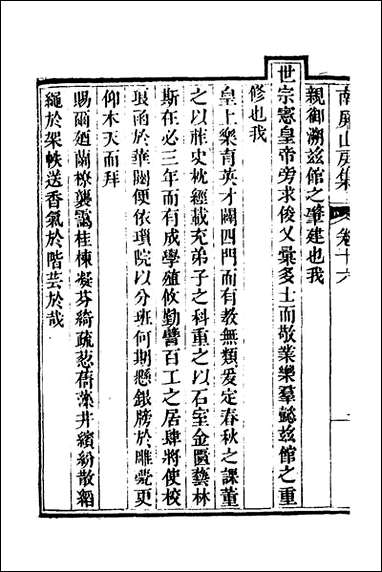 南屏山房集 卷十六
親御溯茲館之肇建也我
世宗憲皇帝旁求俊乂彙多士而敬業樂羣懿茲館之重
修也我
皇上樂育英才闢四門而有敎無類爰定春秋之課董
之以柱史枕經載充弟子之科重之以石室金匱藝林
斯在必三年而有成學殖攸勤譬百工之居肆將使校
琅函於華閣便依瑣院以分班何期懸銀牓於雕甍更
仰木天而拜
賜爾𢌞蘭橑襲靄桂棟凝芬綺疏葱蒨藻井繽紛散緗
繩於架帙送香氣於階芸於哉